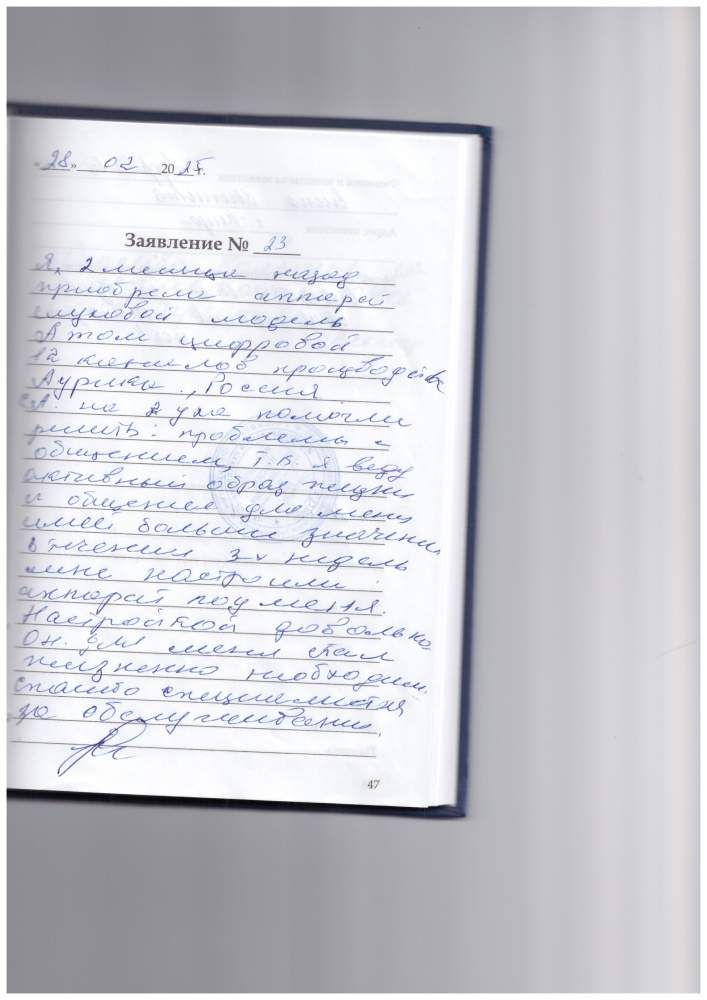 «28» 02 2025 г.
Заявление № 23
Я, 2 месяца назад
приобрела аппарат
слуховой модель
Атом цифровой
12 каналов производства
Аурика, Россия
на 2 уха помогли
решить: проблемы с
общением, т.к. я веду
активный образ жизни
и общение для меня
имеет большое значение
в течении 3х недель
мне настроили
аппарат под меня.
Настройкой довольна
Он для меня стал
жизненно необходим.
спасибо специалистам
за обслуживание.
47